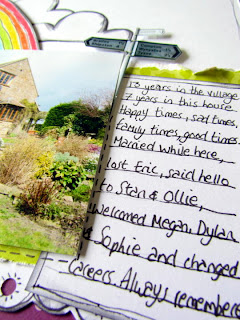 13 years in the village
7 years in this house.
Happy times, sad times,
family times, good times.
Married while here,
lost Eric, said hello
to Stan & Ollie,
welcomed Megan, Dylan
& Sophie and changed
careers. Always remembered